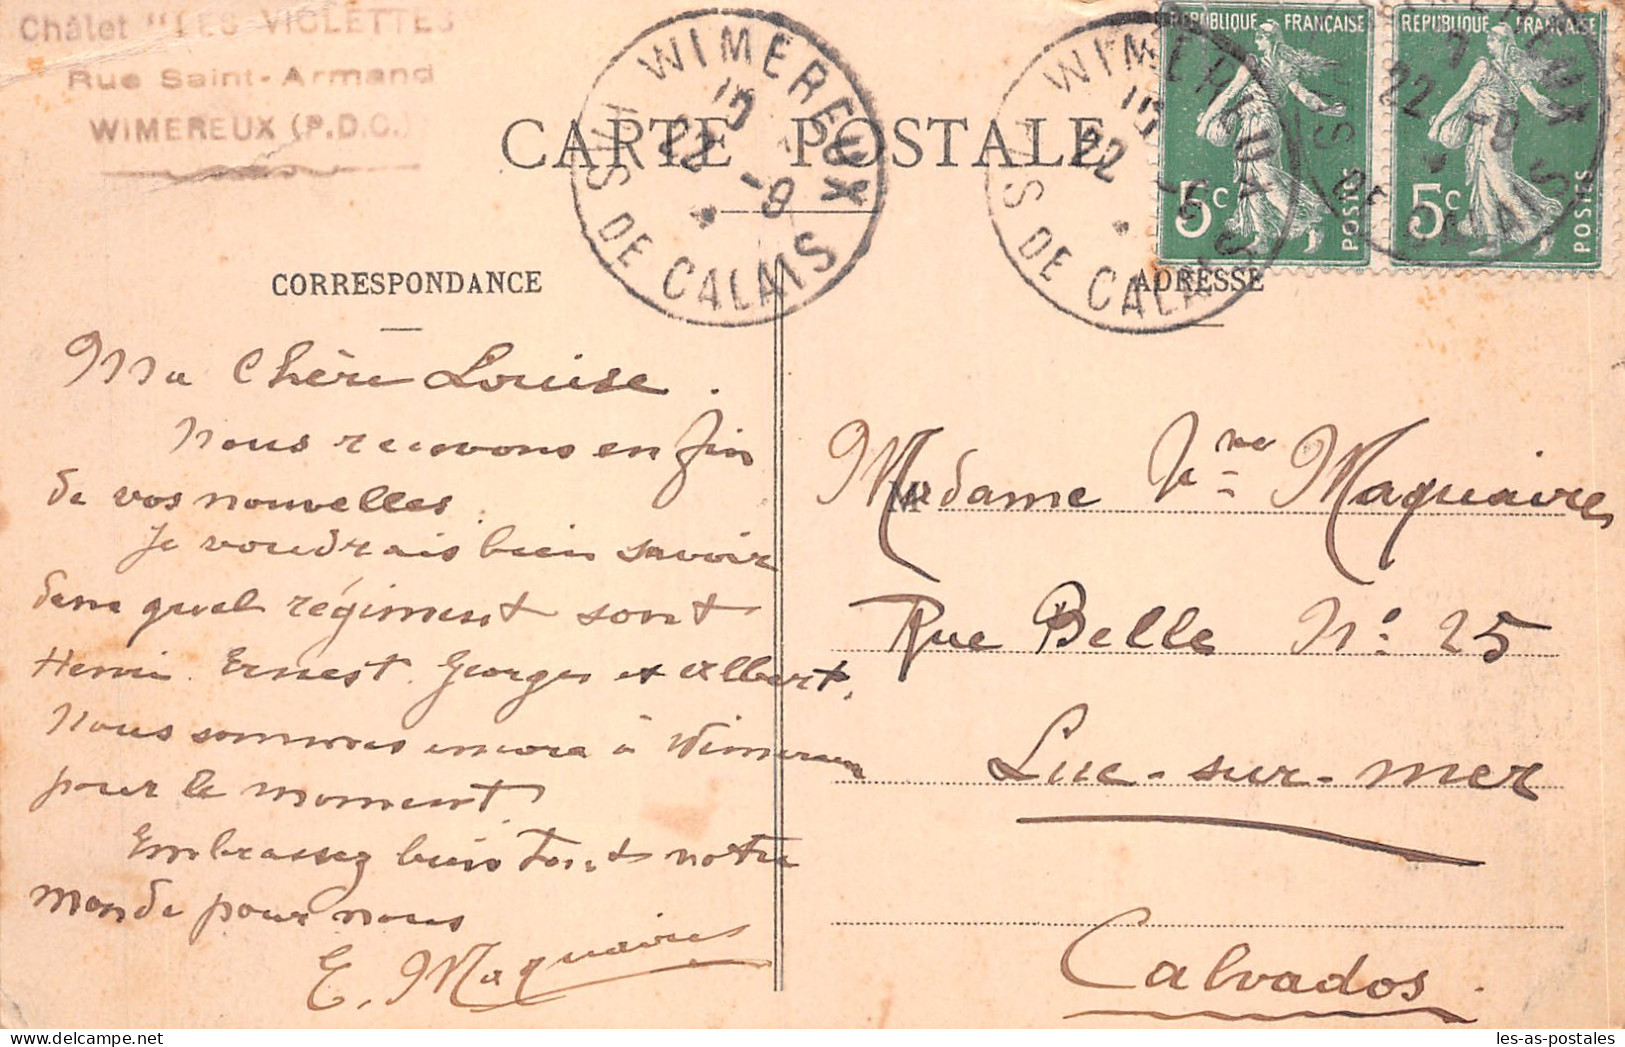 Châlet "LES VIOLETTES"
Rue Saint-Armand
WIMEREUX (P.D.C.)
WIMEREUX
22 -9
PAS DE CALAIS
WIMEREUX
22 -9
PAS DE CALAIS
RÉPUBLIQUE FRANÇAISE
5c POSTES
RÉPUBLIQUE FRANÇAISE
5c POSTES
22 -9
DE CALAIS
CARTE POSTALE
CORRESPONDANCE
ADRESSE
Ma Chère Louise.
Nous recevons enfin
de vos nouvelles.
Je voudrais bien savoir
dans quel régiment sont
Henri. Ernest. Georges et Albert.
Nous sommes encore à Wimereux
pour le moment
Embrassez bien tout notre
monde pour nous
E. Maquaire
M
Madame Vve Maquaire
Rue Belle No. 25
Luc-sur-mer
Calvados.
les-as-postales